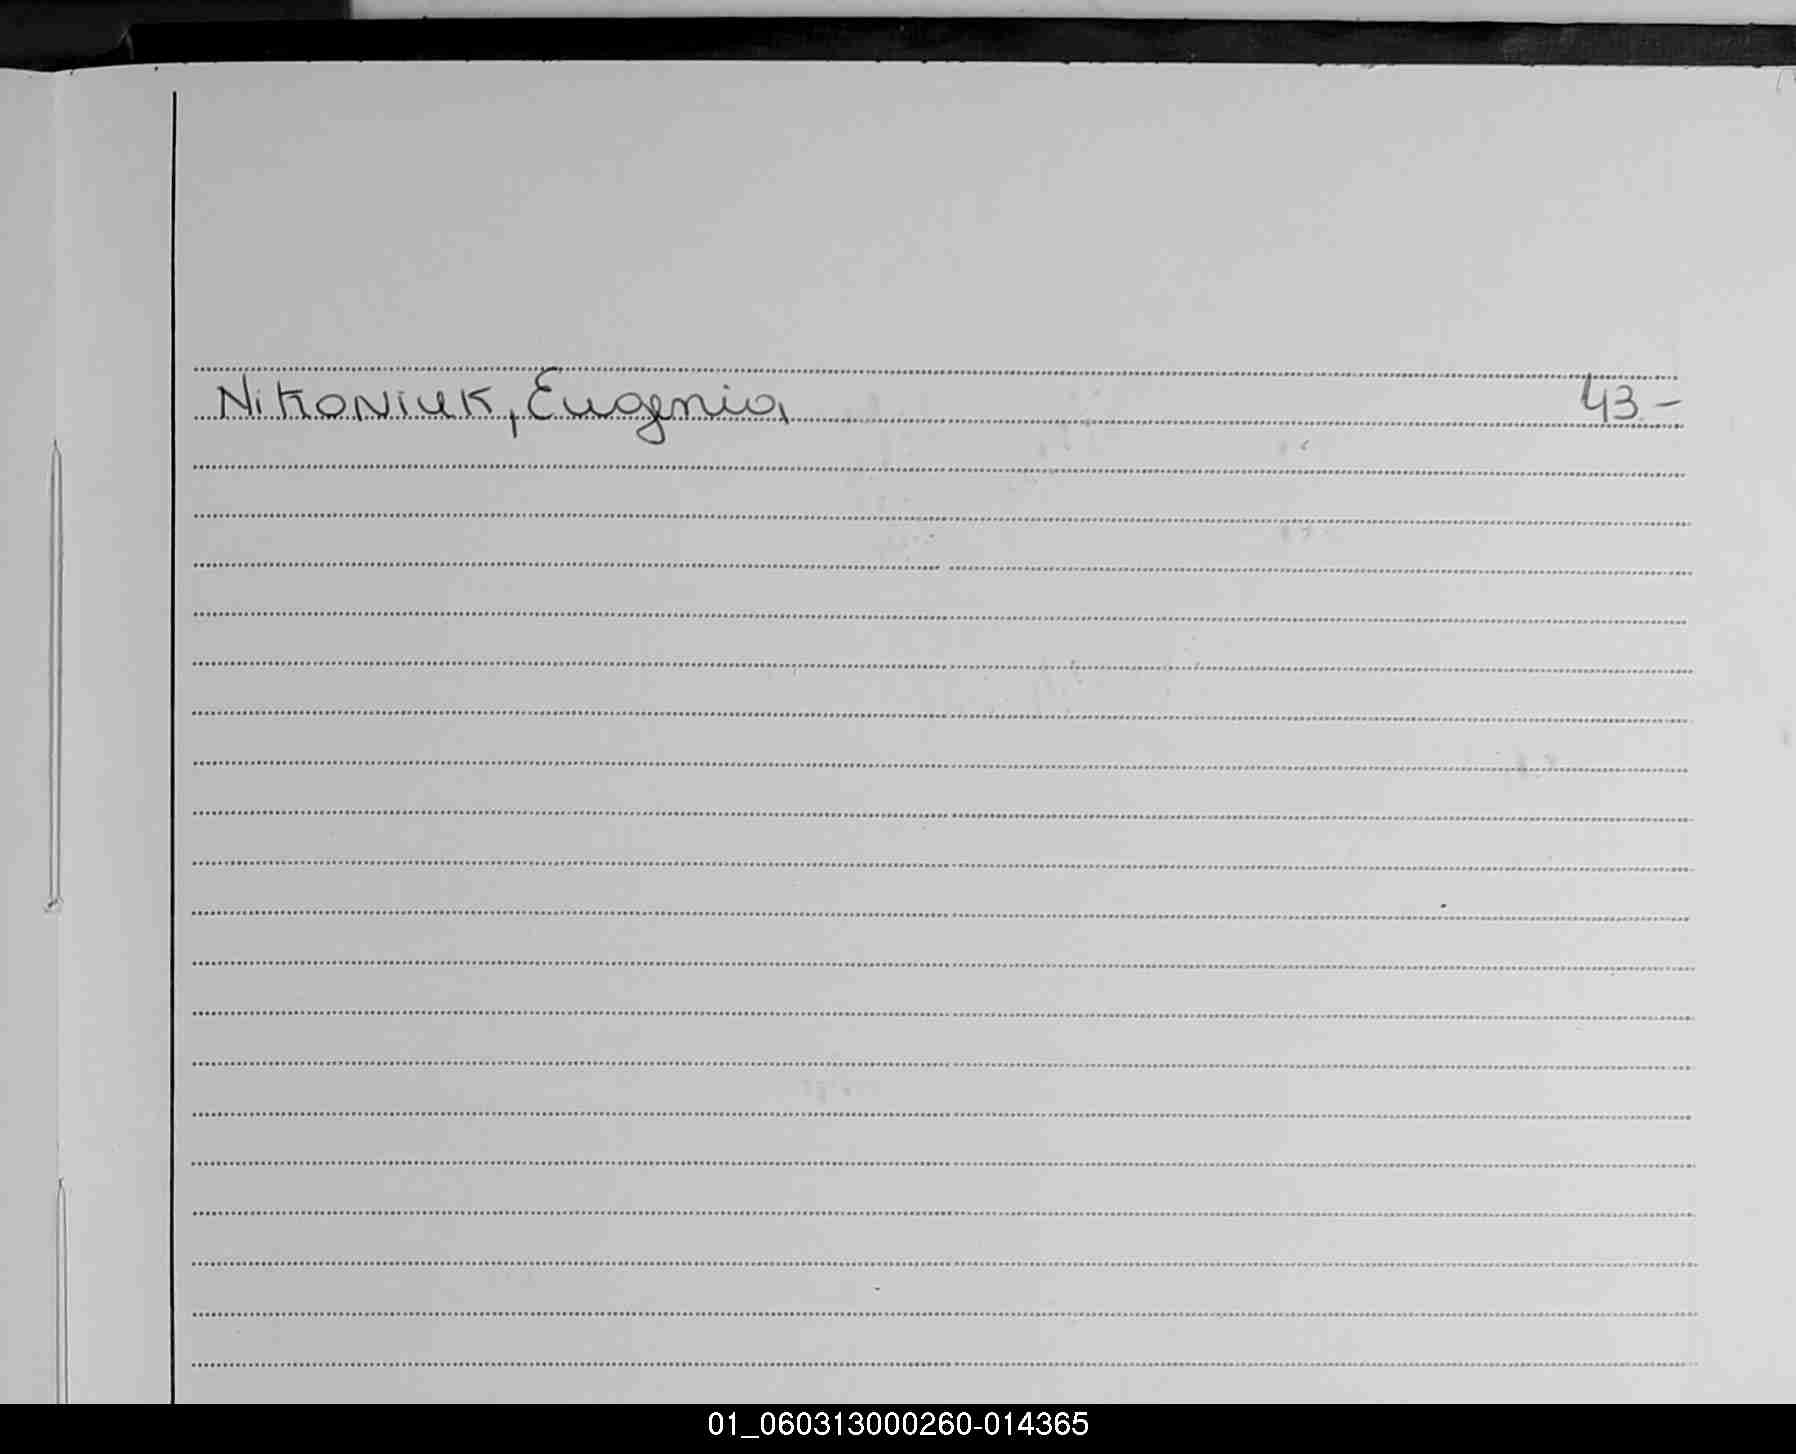 Nikoniuk, Eugenia 43-
01_060313000260-014365